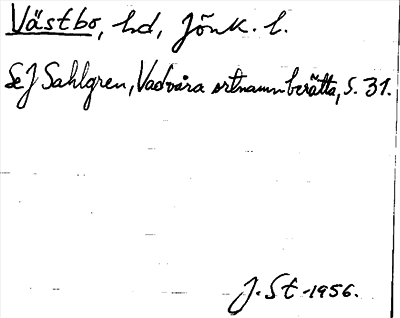 Västbo, hd, Jönk. l.
Se J Sahlgren, Vad våra ortnamn berätta, s. 31.
J. St. 1956.